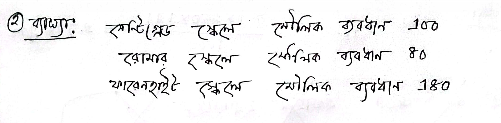 ② ব্যাখ্যা: সেন্টিগ্রেড স্কেলে মৌলিক ব্যবধান 100
রোমার স্কেলে মৌলিক ব্যবধান 80
ফারেনহাইট স্কেলে মৌলিক ব্যবধান 180